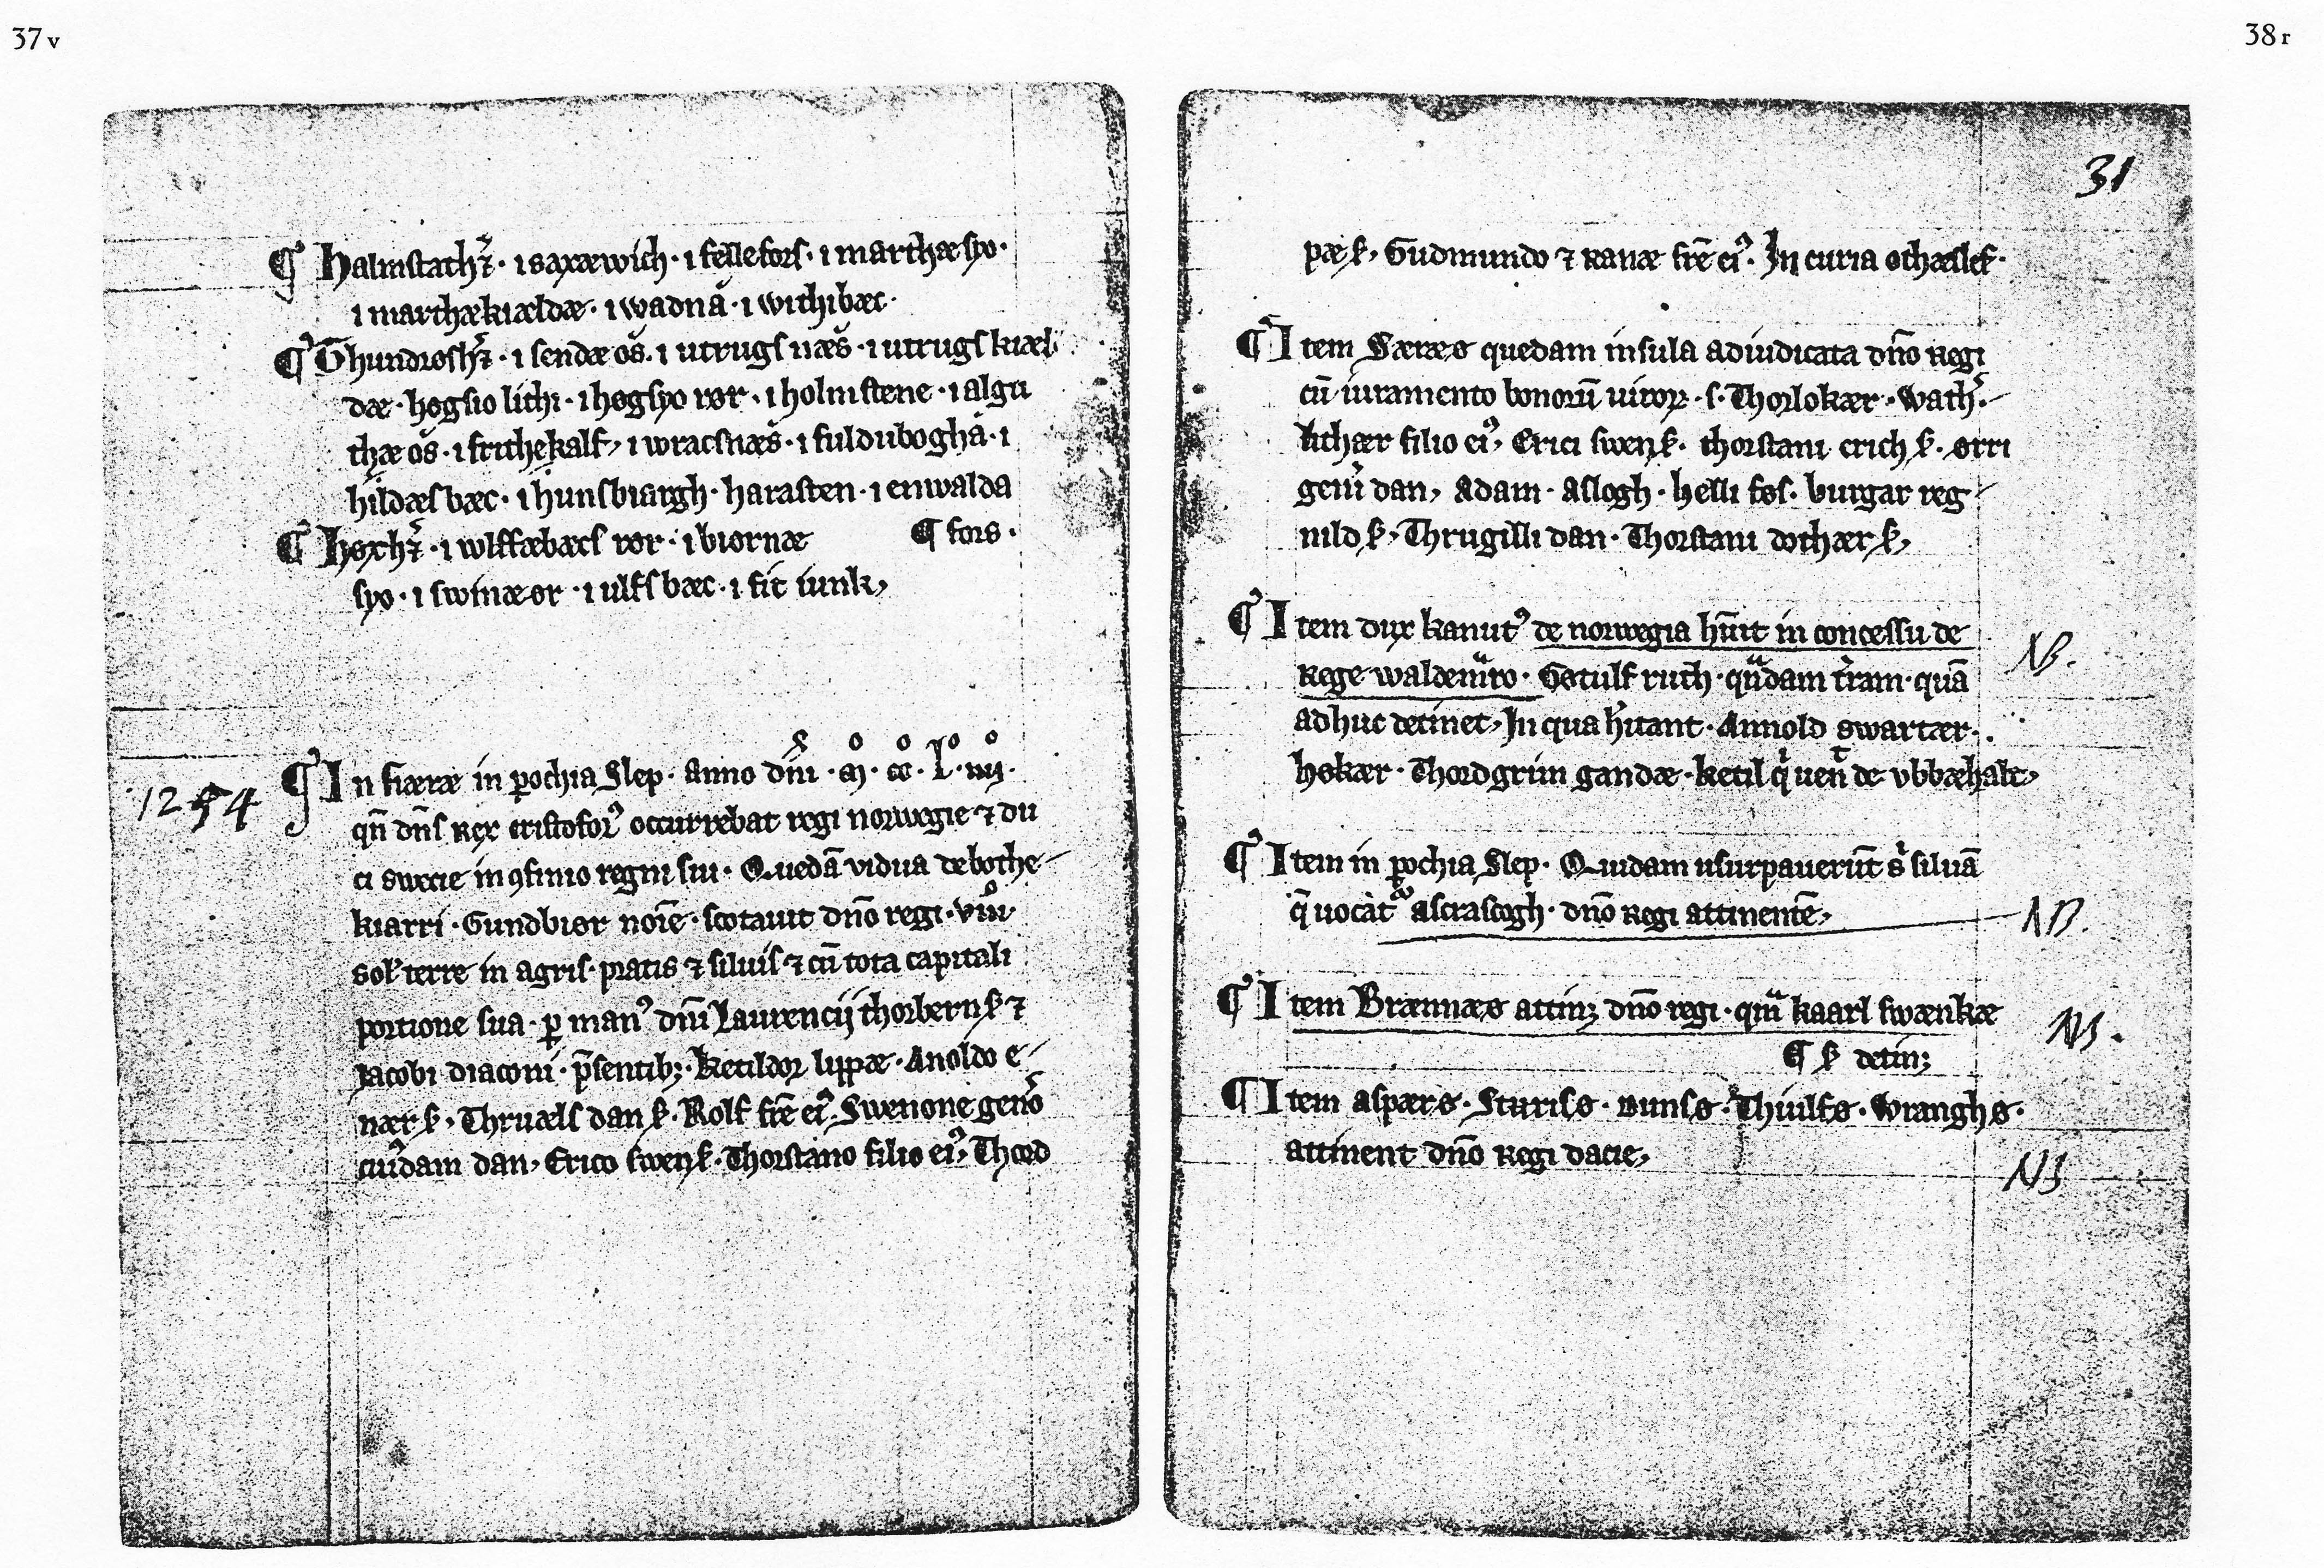 37v
38r
31
¶ Halmstathħꝛ · i saxæwich · i fellefors · i marthæsyo ·
i marthækiældæ · i wadnä · i withibæc ·
¶ Thundrosħꝛ · i sendæ os · i utrugs næs · i utrugs kiæl
dæ · høgsio lithi · i høgsyo rør · i holmstene · i algu
thæ os · i frithekalf, i wracsnæs · i fuldubogha · i
hildæsbæc · i hunsbiargh · harasten · i enwalda
¶ fors ·
¶ høxħꝛ · i wlffæbæcs rør · i biornæ
syo · i swinæ ør · i ulfs bæc · i fit iunk,
1254
¶ In fiæræ in ꝑochia Slep · Anno dñi · m̊ · cc̊ · l̊ · iiij̊ ·
qn̄ dn̄s Rex cristoforꝰ occurrebat regi norwegie ⁊ du
ci swecie in ꝯfinio regni sui · Quedā vidua de bothe
kiarri · Gundbiør noīe · scotauit dn̄o regi · viii̊
sol' terre in agris · pratis ⁊ siluis ⁊ cū tota capitali
portione sua · ꝑ manꝰ dn̄i Laurencij thorbern ẜ ⁊
Iacobi diaconi · p̄sentibꝫ · Ketildoꝛ lippæ · Anoldo e
nær ẜ · Thruæls dan ẜ · Rolf fr̄e eiꝰ · Swenone geño
cuidam dan, Erico swen ẜ · Thorstano filio eiꝰ, Thord
pæ ẜ, Gudmundo ⁊ Ranæ fr̄e eiꝰ. In curia othæslef ·
¶ Item Særæs quedam insula adiudicata dn̄o Regi
cū iuramento bonoꝝ uiroꝝ · s · Thorlokær · Wath
lithær filio eiꝰ, Erici swen ẜ · thorstani erich ẜ · orri
geni dan, Adam · Aslogh · helli fos · burgar reg
nild ẜ · Thrugilli dan · Thorstani dothær ẜ,
¶ Item dux kanutꝰ de norwegia hūit in concessu de
Rege waldemͣro · Gøtulf ruth · qͣndam t̄ram · quā
adhuc detinet, In qua hītant · Annold swartær ·
høkær · Thordgrim gandæ · ketil q' uenit de vbbæhalt,
NB.
¶ Item in ꝑochia Slep · Quidam usurpauerūt s' siluā
q̄ uocatͬ ascrascogh · dn̄o Regi attinentē,
NB.
¶ Item Brænnæs attinꝫ dn̄o regi · qm̄ kaarl swænkæ
¶ ẜ detinꝫ
NB.
¶ Item aspærs · Sturiss · Bunss · Thiulfs · Wranghs ·
attinent dn̄o Regi dacie,
NB